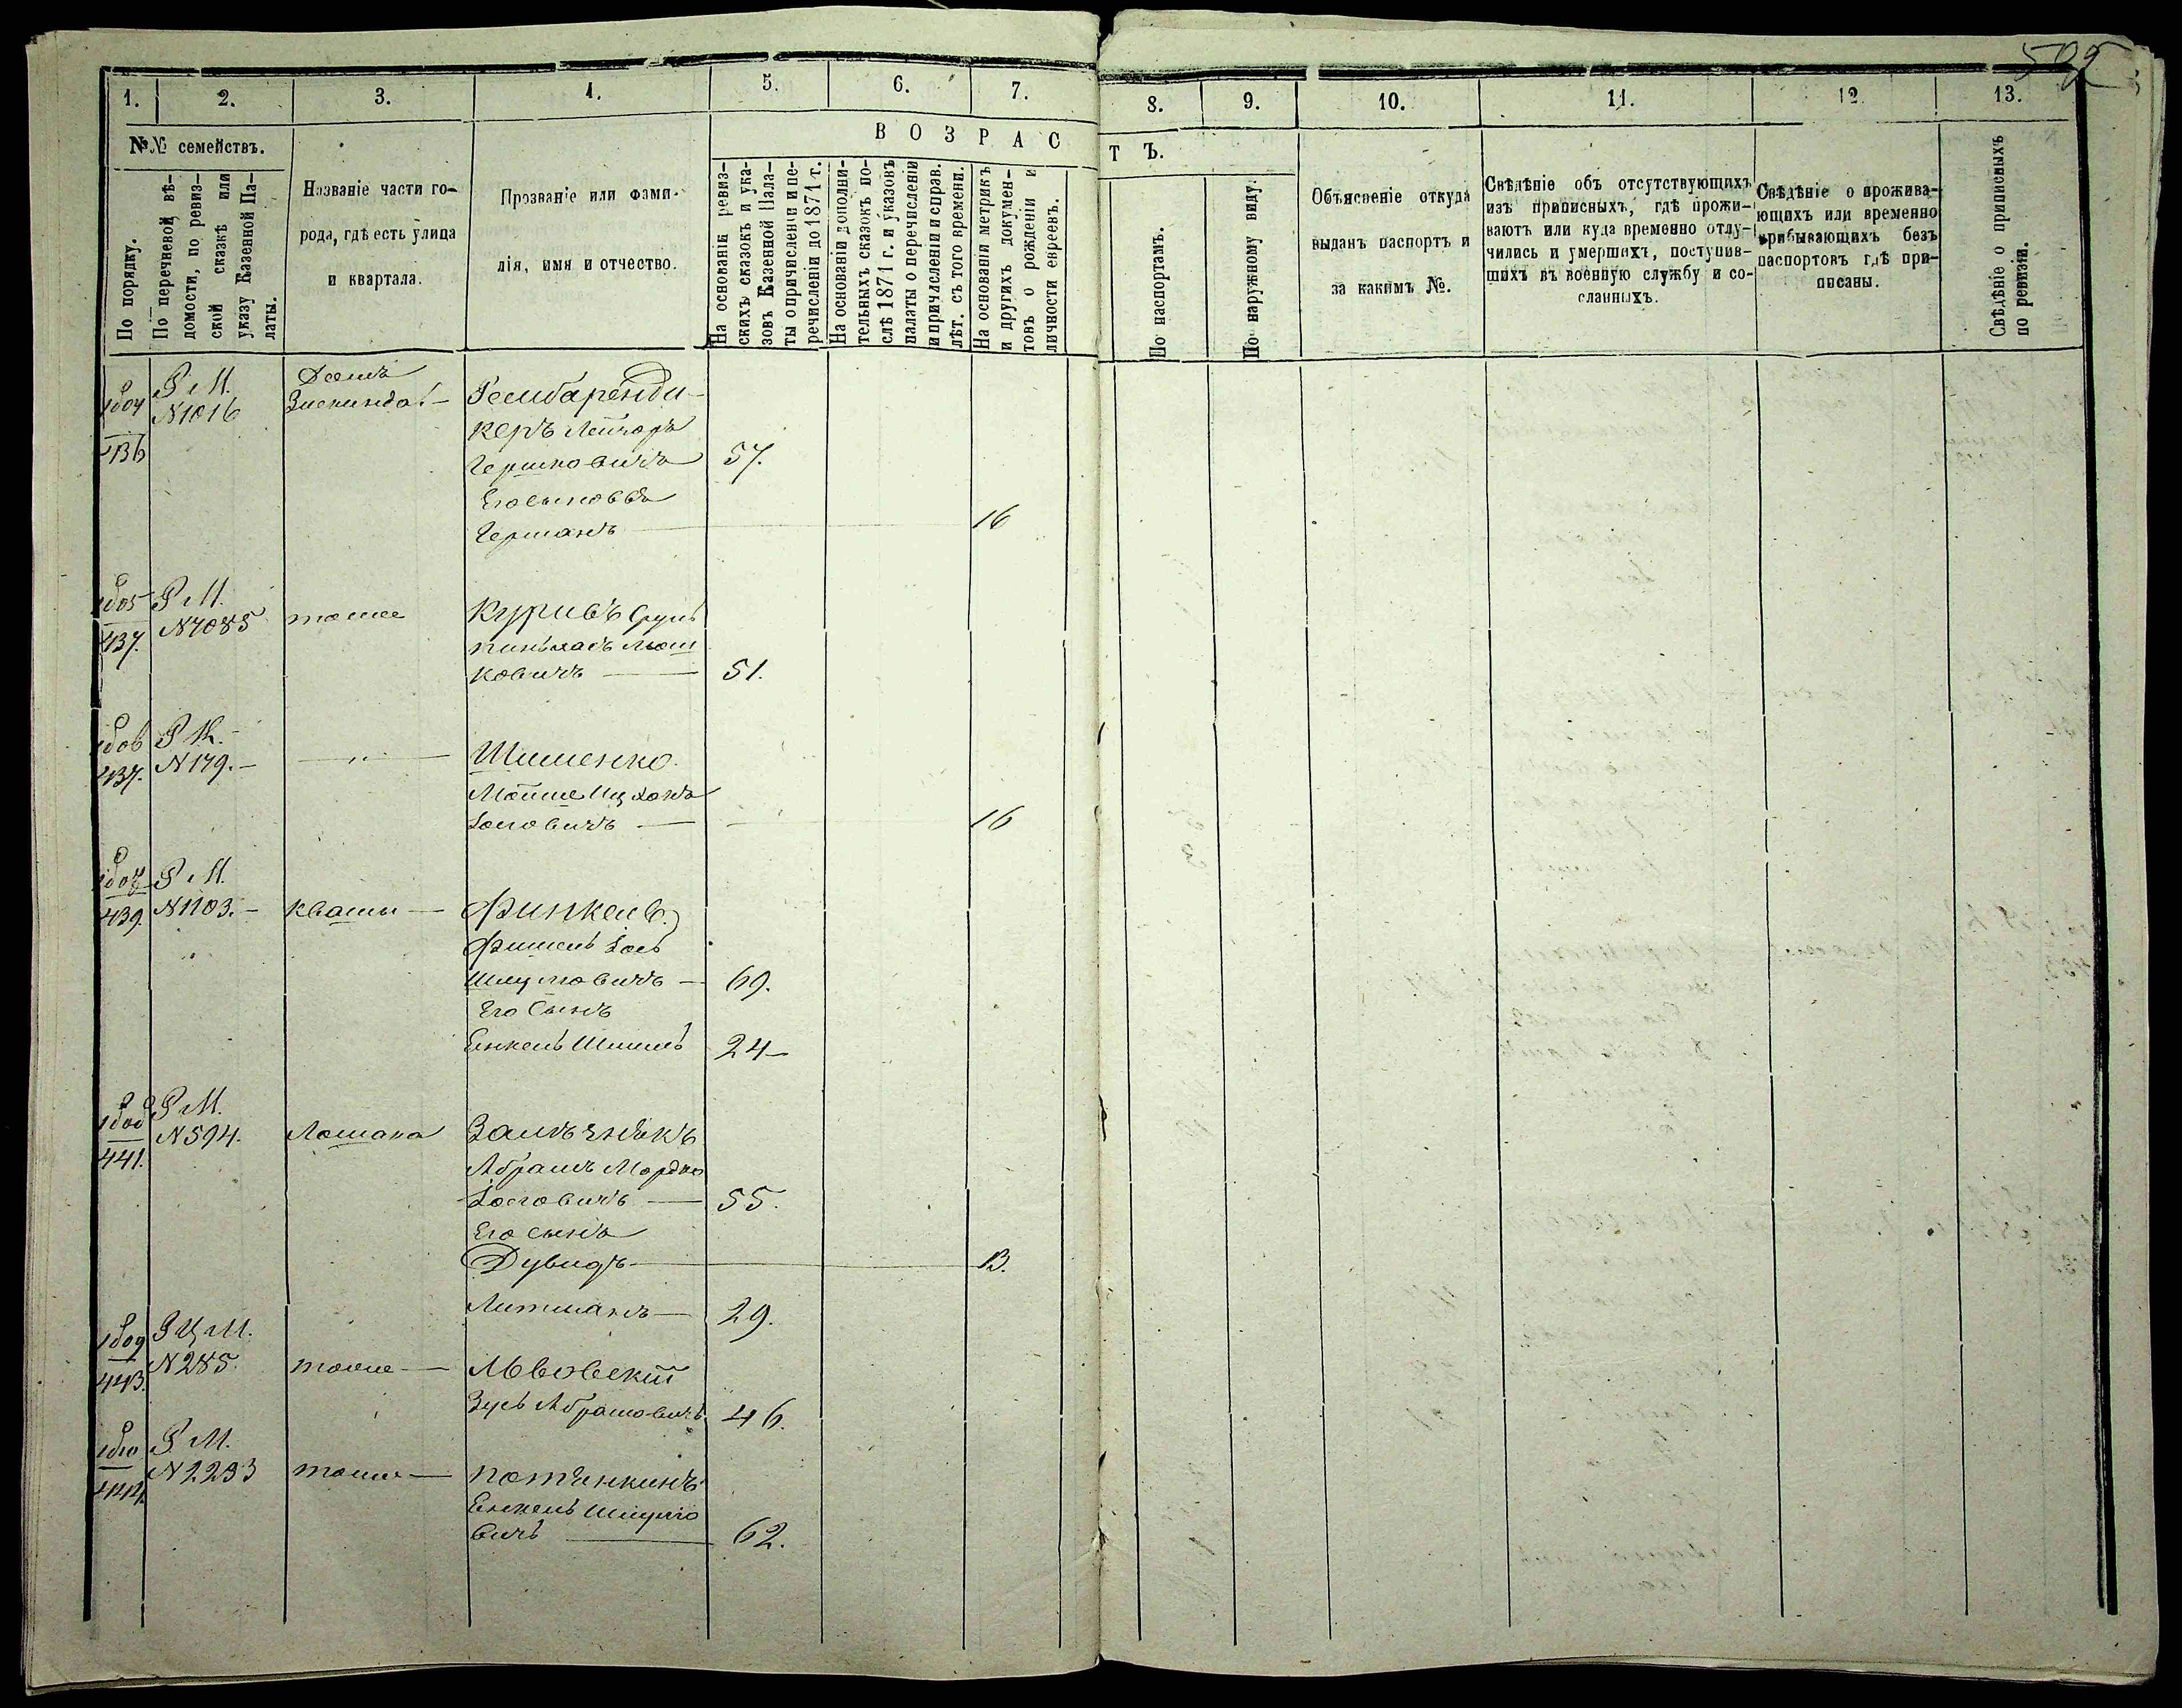 595
1. 2. 3. 4. 5. 6. 7. 8. 9. 10. 11. 12. 13.
№№ семействъ.
По порядку.
По перечневой вѣ-
домости, по ревиз-
ской сказкѣ или
указу Казенной Па-
латы.
Названіе части го-
рода, гдѣ есть улица
и квартала.
Прозваніе или фами-
лія, имя и отчество.
ВОЗРАСТЪ.
На основаніи ревиз-
скихъ сказокъ и ука-
зовъ Казенной Пала-
ты о причисленіи и пе-
речисленіи до 1871 г.
На основаніи дополни-
тельныхъ сказокъ по-
слѣ 1871 г. и указовъ
палаты о перечисленіи
и причисленіи и справ.
лѣт. съ того времени.
На основаніи метрикъ
и другихъ докумен-
товъ о рожденіи и
личности евреевъ.
По паспортамъ.
По наружному виду.
Объясненіе откуда
выданъ паспортъ и
за какимъ №.
Свѣдѣніе объ отсутствующихъ
изъ приписныхъ, гдѣ прожи-
ваютъ или куда временно отлу-
чились и умершихъ, поступив-
шихъ въ военную службу и со-
сланныхъ.
Свѣдѣніе о прожива-
ющихъ или временно
прибывающихъ безъ
паспортовъ гдѣ при-
писаны.
Свѣдѣніе о приписныхъ
по ревизіи.
Домъ
1804 Р М.
436 N1016 Зискинда
керъ Лейзоръ
Гершковичъ 57.
Его сыновья
Германъ 16
1805 Р М.
437. N1085 тоже Куривъ Сруль
Пинхасъ
ковичъ 51.
1806 Р К.
437. N179. — " — Шишенко.
Мойше Ицхокъ
Іосіовичъ 16
1807 Р М.
439. N1103. Кваши Финкель
Фишель Іось
Шмулювичъ 69.
Его сынъ
Енкель Шмиль 24
1808 Р М.
441. N594. Лошака
Абрамъ Мордко
Іосіовичъ 55.
Его сынъ
Дувидъ 13.
Литманъ 29.
1809 Р Ц М.
443. N285. тоже Львовскій
Зусь Абрамовичъ 46.
1810 Р М.
444. N2293 тоже Потѣнкинъ
Енкель Шмуліо
вичъ 62.